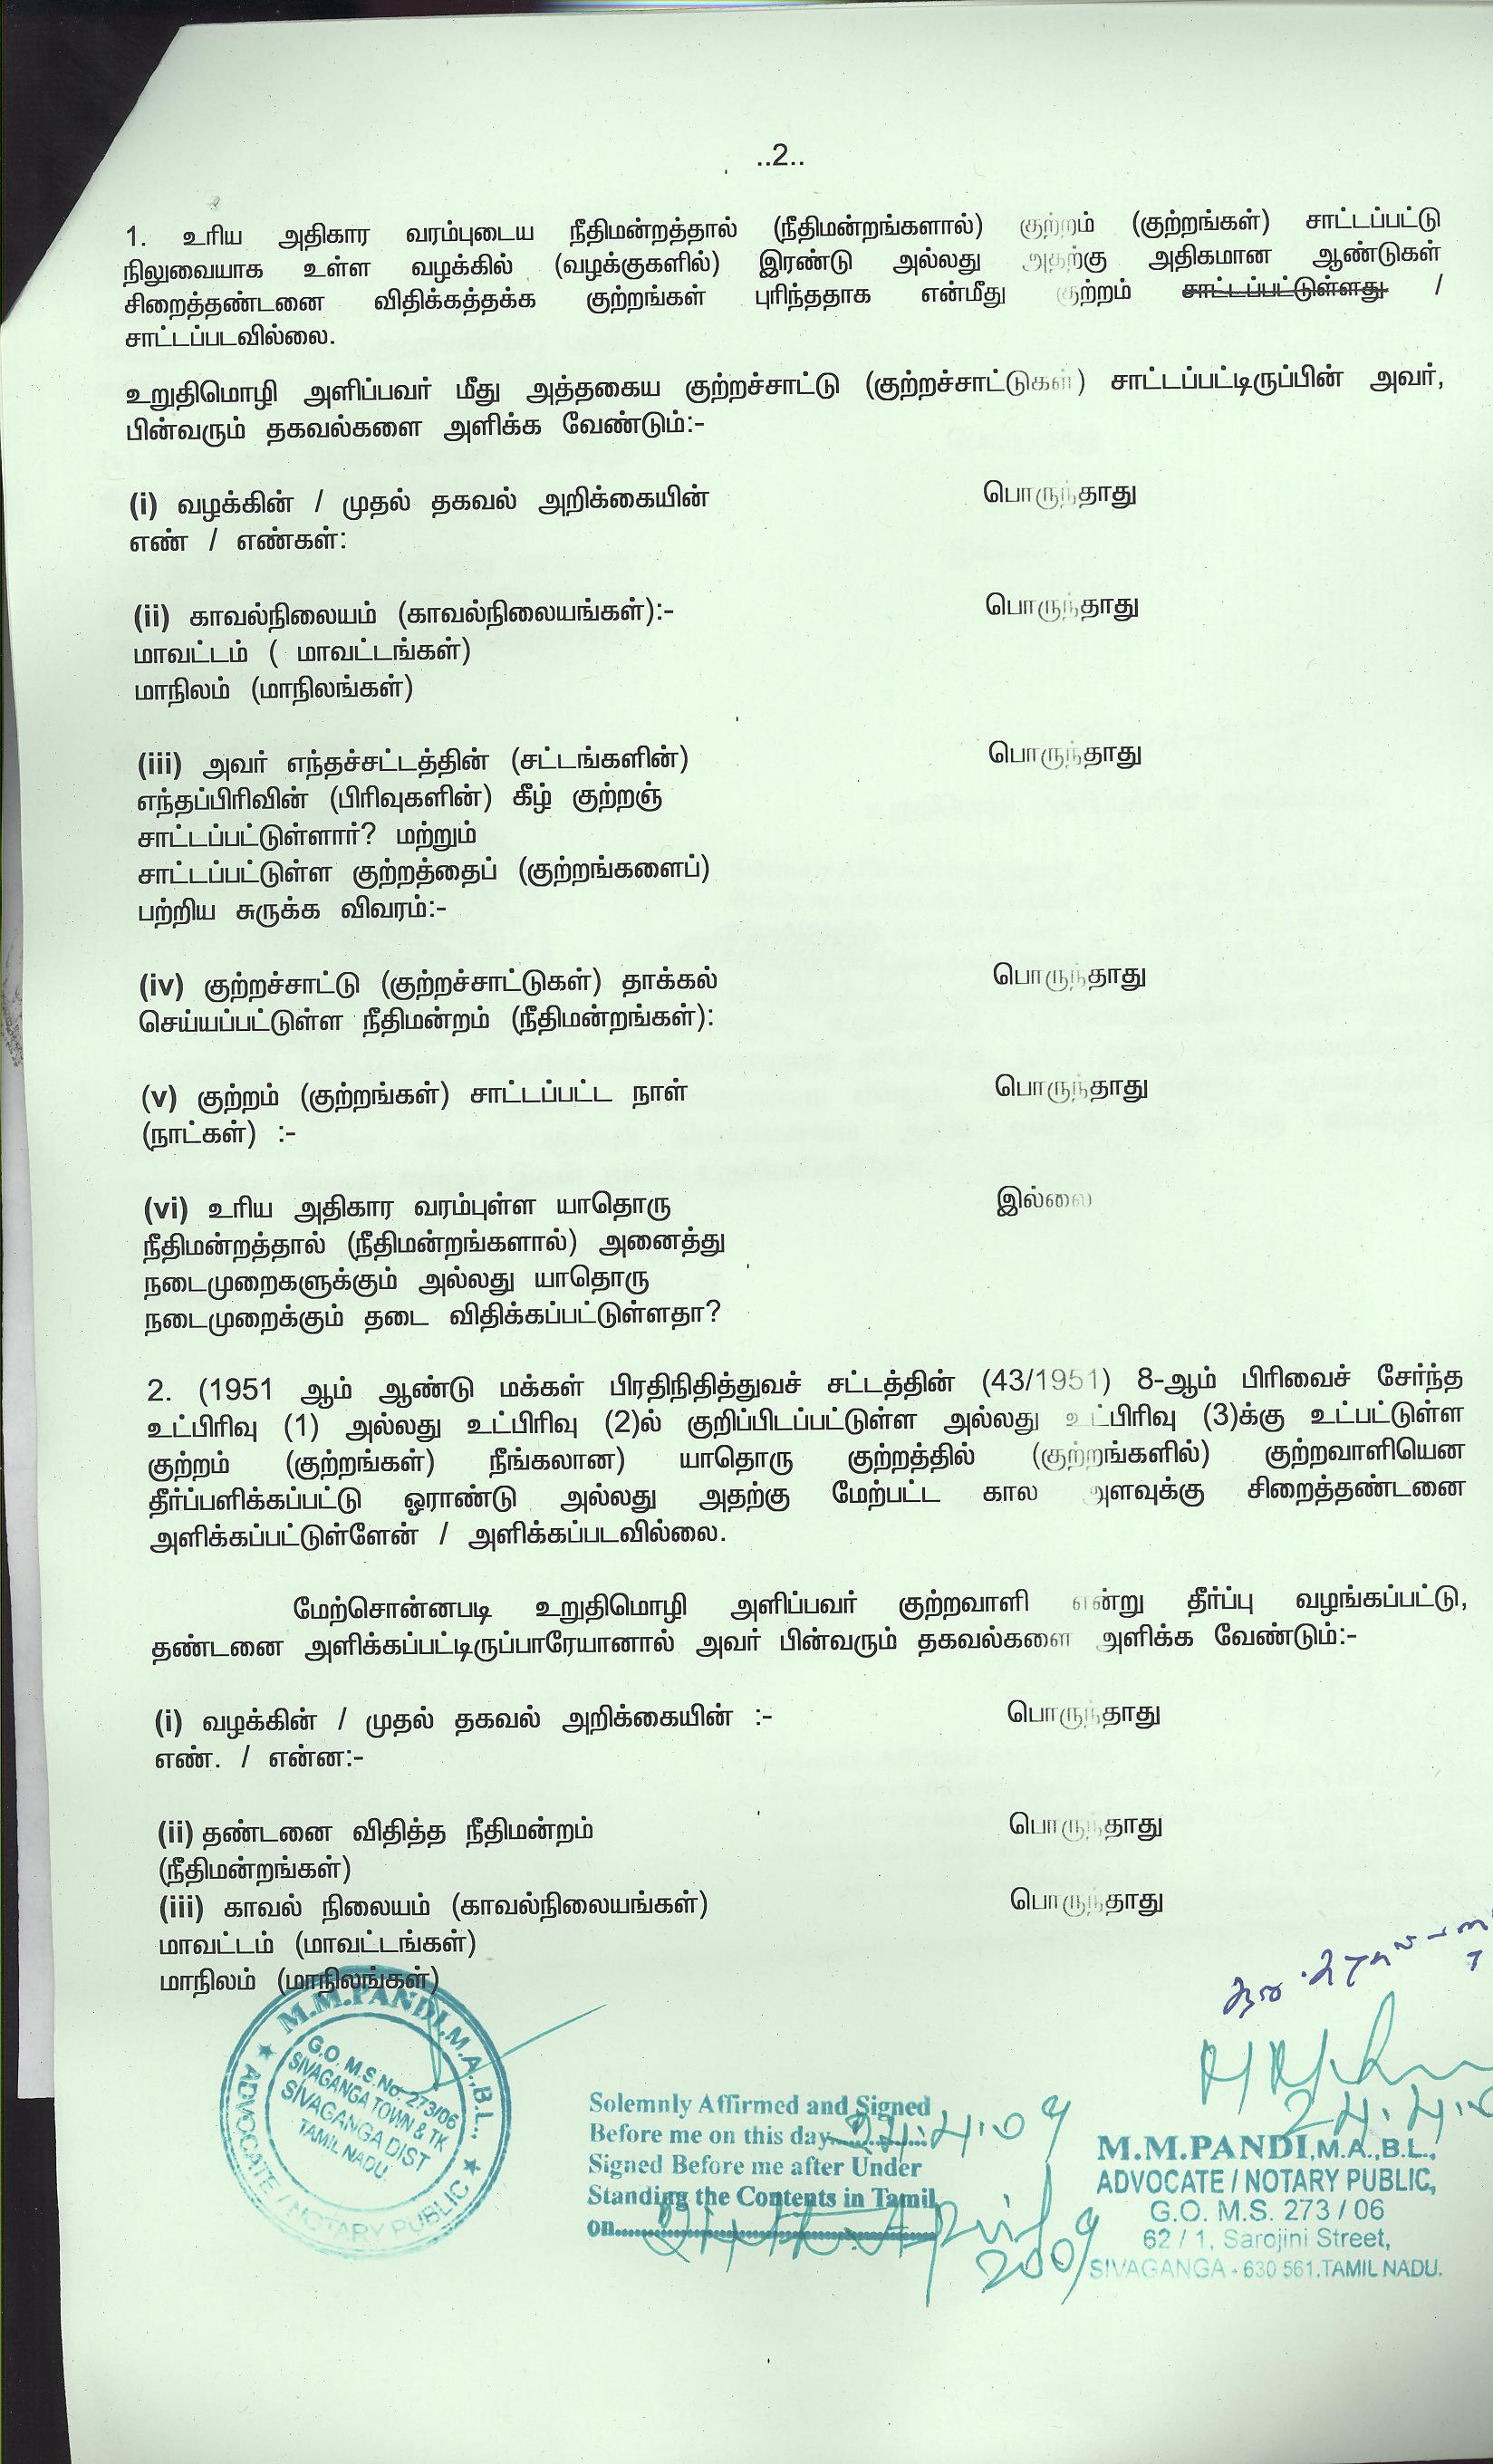 ..2..
1. உரிய அதிகார வரம்புடைய நீதிமன்றத்தால் (நீதிமன்றங்களால்) குற்றம் (குற்றங்கள்) சாட்டப்பட்டு
நிலுவையாக உள்ள வழக்கில் (வழக்குகளில்) இரண்டு அல்லது அதற்கு அதிகமான ஆண்டுகள்
சிறைத்தண்டனை விதிக்கத்தக்க குற்றங்கள் புரிந்ததாக என்மீது குற்றம் சாட்டப்பட்டுள்ளது /
சாட்டப்படவில்லை.
உறுதிமொழி அளிப்பவர் மீது அத்தகைய குற்றச்சாட்டு (குற்றச்சாட்டுகள்) சாட்டப்பட்டிருப்பின் அவர்,
பின்வரும் தகவல்களை அளிக்க வேண்டும்:-
(i) வழக்கின் / முதல் தகவல் அறிக்கையின் பொருந்தாது
எண் / எண்கள்:
(ii) காவல்நிலையம் (காவல்நிலையங்கள்):- பொருந்தாது
மாவட்டம் ( மாவட்டங்கள்)
மாநிலம் (மாநிலங்கள்)
(iii) அவர் எந்தச்சட்டத்தின் (சட்டங்களின்) பொருந்தாது
எந்தப்பிரிவின் (பிரிவுகளின்) கீழ் குற்றஞ்
சாட்டப்பட்டுள்ளார்? மற்றும்
சாட்டப்பட்டுள்ள குற்றத்தைப் (குற்றங்களைப்)
பற்றிய சுருக்க விவரம்:-
(iv) குற்றச்சாட்டு (குற்றச்சாட்டுகள்) தாக்கல் பொருந்தாது
செய்யப்பட்டுள்ள நீதிமன்றம் (நீதிமன்றங்கள்):
(v) குற்றம் (குற்றங்கள்) சாட்டப்பட்ட நாள் பொருந்தாது
(நாட்கள்) :-
(vi) உரிய அதிகார வரம்புள்ள யாதொரு இல்லை
நீதிமன்றத்தால் (நீதிமன்றங்களால்) அனைத்து
நடைமுறைகளுக்கும் அல்லது யாதொரு
நடைமுறைக்கும் தடை விதிக்கப்பட்டுள்ளதா?
2. (1951 ஆம் ஆண்டு மக்கள் பிரதிநிதித்துவச் சட்டத்தின் (43/1951) 8-ஆம் பிரிவைச் சேர்ந்த
உட்பிரிவு (1) அல்லது உட்பிரிவு (2)ல் குறிப்பிடப்பட்டுள்ள அல்லது உட்பிரிவு (3)க்கு உட்பட்டுள்ள
குற்றம் (குற்றங்கள்) நீங்கலான) யாதொரு குற்றத்தில் (குற்றங்களில்) குற்றவாளியென
தீர்ப்பளிக்கப்பட்டு ஓராண்டு அல்லது அதற்கு மேற்பட்ட கால அளவுக்கு சிறைத்தண்டனை
அளிக்கப்பட்டுள்ளேன் / அளிக்கப்படவில்லை.
மேற்சொன்னபடி உறுதிமொழி அளிப்பவர் குற்றவாளி என்று தீர்ப்பு வழங்கப்பட்டு,
தண்டனை அளிக்கப்பட்டிருப்பாரேயானால் அவர் பின்வரும் தகவல்களை அளிக்க வேண்டும்:-
(i) வழக்கின் / முதல் தகவல் அறிக்கையின் :- பொருந்தாது
எண். / என்ன:-
(ii) தண்டனை விதித்த நீதிமன்றம் பொருந்தாது
(நீதிமன்றங்கள்)
(iii) காவல் நிலையம் (காவல்நிலையங்கள்) பொருந்தாது
மாவட்டம் (மாவட்டங்கள்)
மாநிலம் (மாநிலங்கள்)
M.M.PANDI,M.A.,B.L.,
ADVOCATE / NOTARY PUBLIC
G.O. M.S.No. 273/06
SIVAGANGA TOWN & TK
SIVAGANGA DIST
TAMIL NADU.
Solemnly Affirmed and Signed
Before me on this day 24.4.09
Signed Before me after Under
Standing the Contents in Tamil
on
2009
M.M.PANDI,M.A.,B.L.,
ADVOCATE / NOTARY PUBLIC,
G.O. M.S. 273 / 06
62 / 1, Sarojini Street,
SIVAGANGA - 630 561.TAMIL NADU.